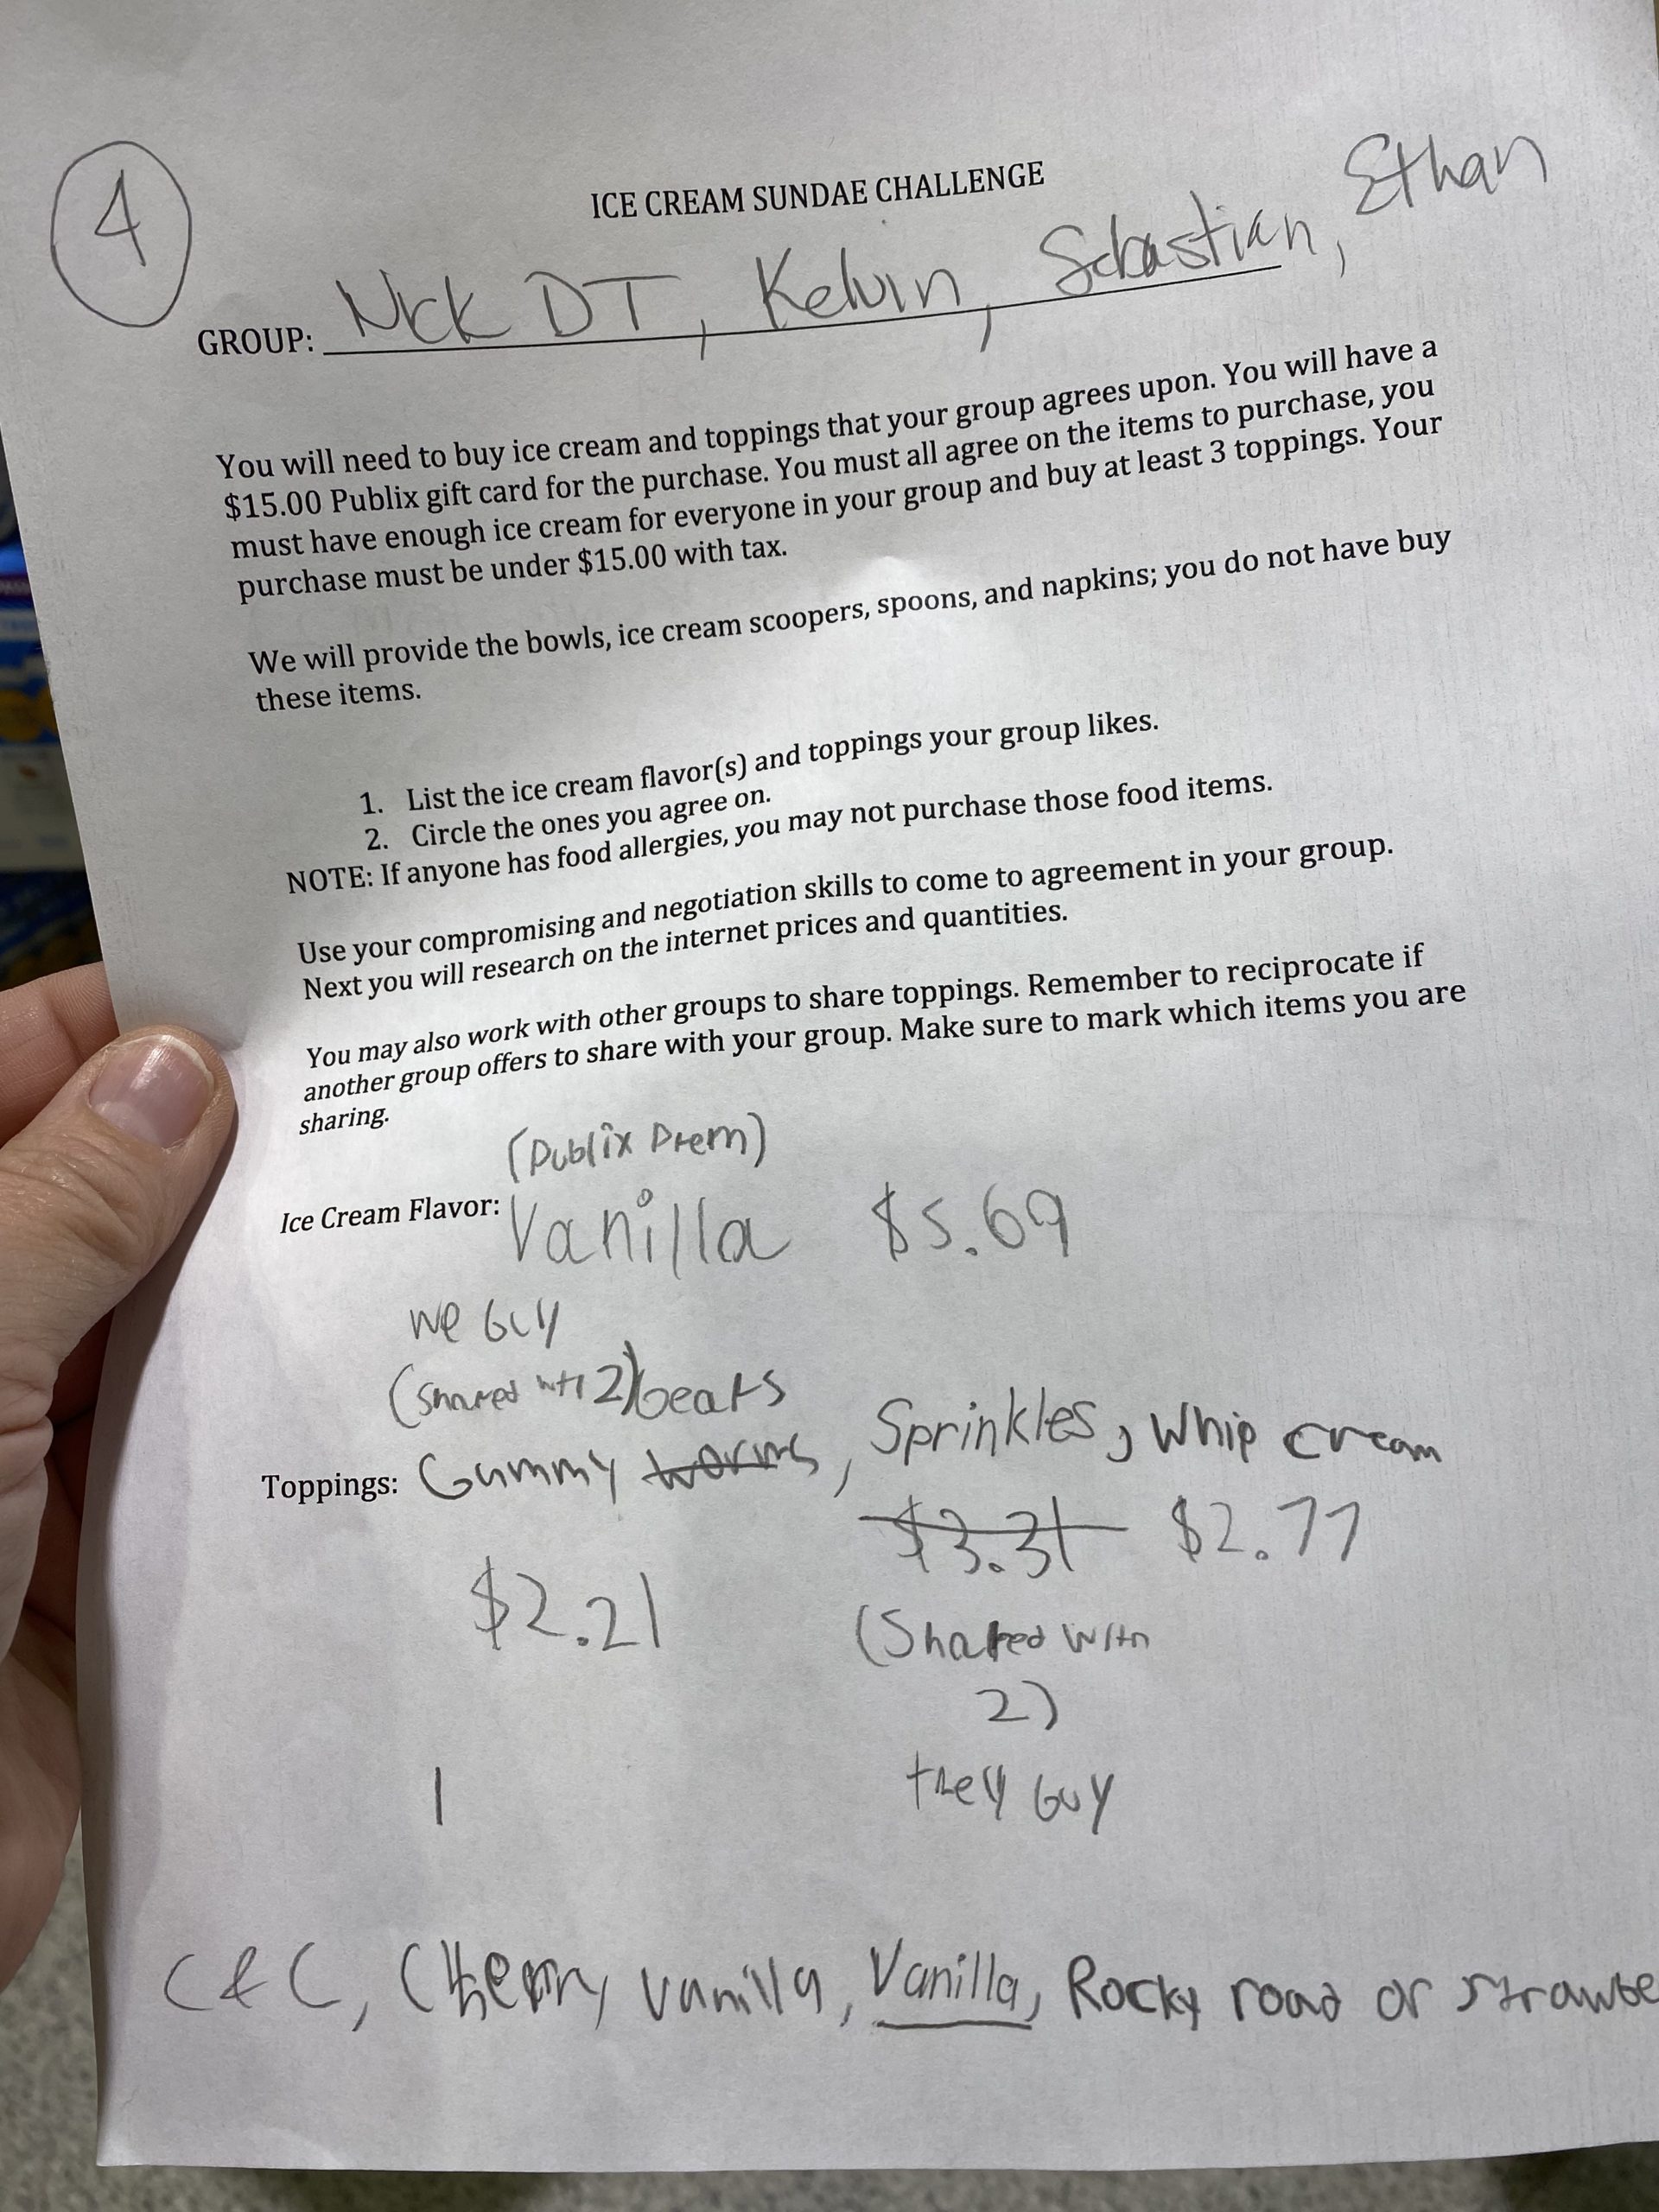 4
ICE CREAM SUNDAE CHALLENGE
GROUP: Nick DT, Kelvin, Sebastian, Ethan
You will need to buy ice cream and toppings that your group agrees upon. You will have a
$15.00 Publix gift card for the purchase. You must all agree on the items to purchase, you
must have enough ice cream for everyone in your group and buy at least 3 toppings. Your
purchase must be under $15.00 with tax.
We will provide the bowls, ice cream scoopers, spoons, and napkins; you do not have buy
these items.
1. List the ice cream flavor(s) and toppings your group likes.
2. Circle the ones you agree on.
NOTE: If anyone has food allergies, you may not purchase those food items.
Use your compromising and negotiation skills to come to agreement in your group.
Next you will research on the internet prices and quantities.
You may also work with other groups to share toppings. Remember to reciprocate if
another group offers to share with your group. Make sure to mark which items you are
sharing.
(Publix Prem)
Ice Cream Flavor: Vanilla $5.69
we buy
(Shared with 2) bears
Toppings: Gummy worms, Sprinkles, Whip cream
$3.31 $2.77
$2.21
(Shared with
2)
they buy
C & C, Cherry vanilla, Vanilla, Rocky road or strawbe